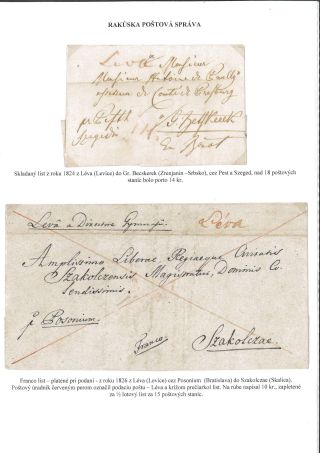 RAKÚSKA POŠTOVÁ SPRÁVA
Leva
Monsieur
Monsieur Antoine de
assesseur de Comté de Presburg
pr Pesth
Szegedin
G: Betskerek
En Banat
Skladaný list z roku 1824 z Léva (Levice) do Gr. Becskerek (Zrenjanin –Srbsko), cez Pest a Szeged, nad 18 poštových
staníc bolo porto 14 kr.
Levâ a Directne Gymnasii
Léva
Amplissimo Liberae Regiaeque Civitatis
Szakolczensis Magistratui, Dominis Co
lendissimis
p Posonium
Franco
Szakolczae
Franco list – platené pri podaní - z roku 1826 z Léva (Levice) cez Posonium (Bratislava) do Szakolczae (Skalica).
Poštový úradník červeným perom označil podaciu poštu – Léva a krížom prečiarkol list. Na rube napísal 10 kr., zapletené
za ½ lotový list za 15 poštových staníc.